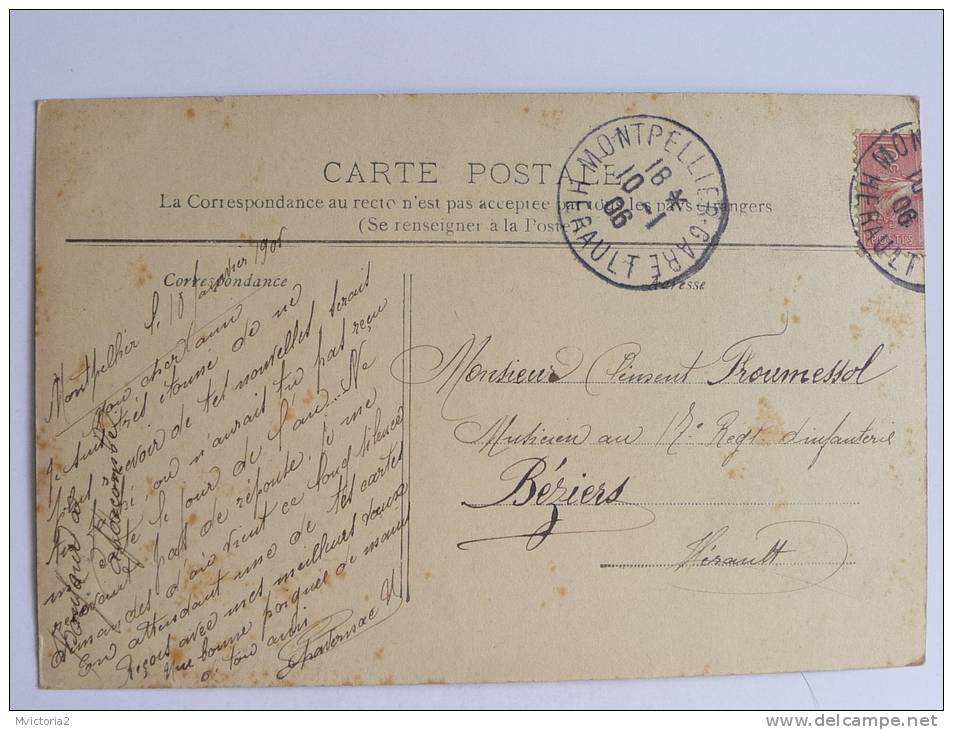 CARTE POSTALE
La Correspondance au recto n'est pas acceptée par tous les pays étrangers
(Se renseigner à la Poste)
MONTPELLIER-GARE
HERAULT
18 *
10 - 1
06
MON
10
06
HERAULT
Correspondance
Adresse
Montpellier le 10 Janvier 1906
Mon cher ami
Je suis très étonné de ne
recevoir de tes nouvelles serais
ou n'aurais tu pas reçu
le jour de l'an. Ne
pas de réponse, je me
demandes d'où vient ce long silence
En attendant une de tes cartes
Reçois avec mes meilleurs vœux
Une bonne poignée de main
de ton ami
Bonjour
Monsieur Vincent Froumessol
Musicien au 17e Regt d'infanterie
Béziers
Hérault
Mvictoria2
www.delcampe.net